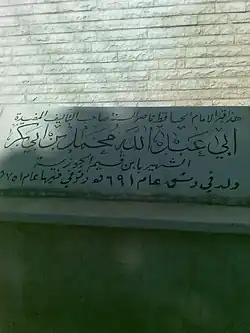 هذا قبر الإمام الحافظ ناصر السنة صاحب التآليف المفيدة
أبي عبد الله محمد بن أبي بكر
الشهير بابن قيم الجوزية
ولد في دمشق عام ٦٩١ هـ وتوفي فيها عام ٧٥١ هـ